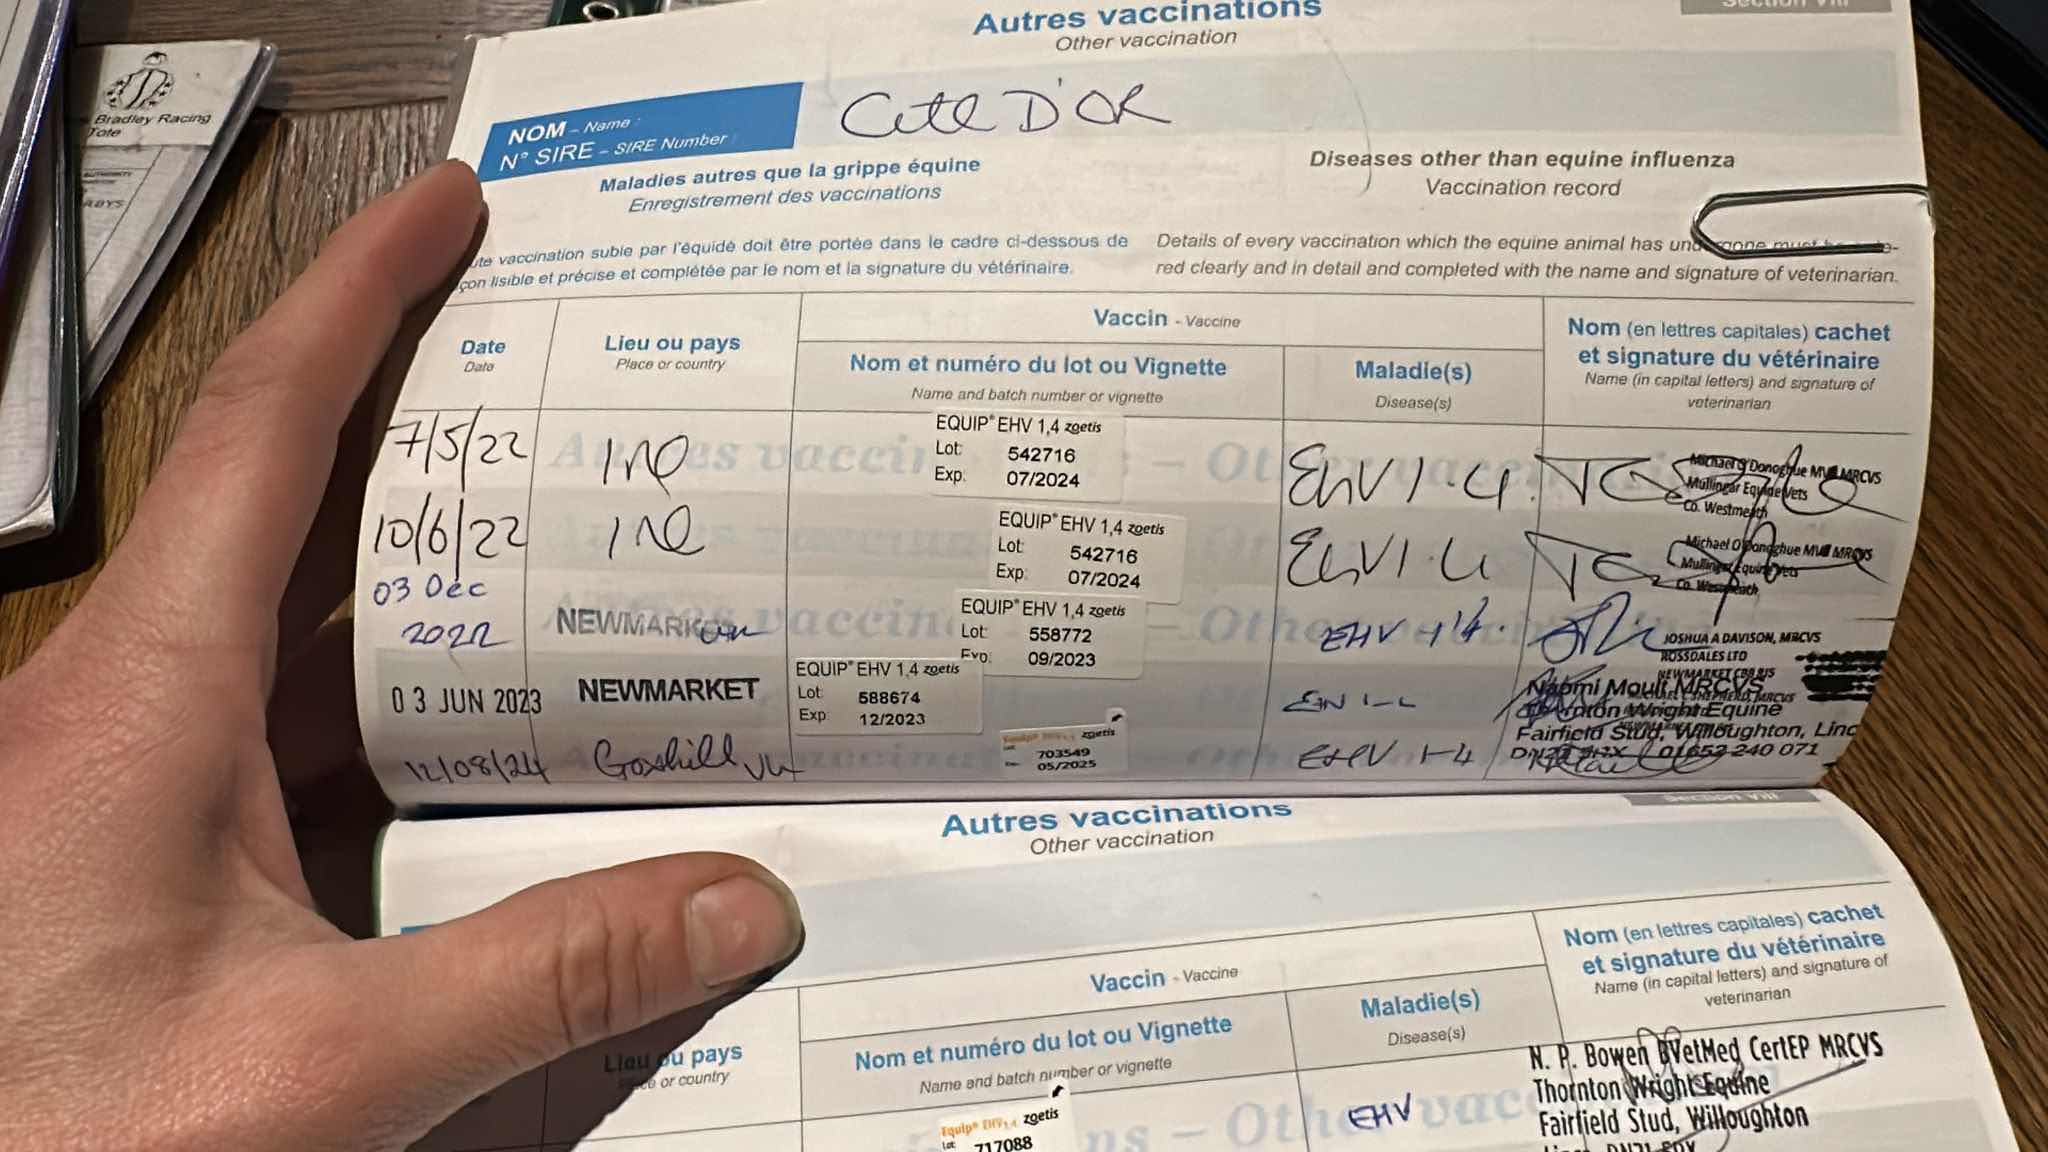 Bradley Racing
Tote
Autres vaccinations
Other vaccination
Section VIII
NOM – Name :
N° SIRE – SIRE Number :
D'OR
Maladies autres que la grippe équine
Enregistrement des vaccinations
Diseases other than equine influenza
Vaccination record
vaccination subie par l'équidé doit être portée dans le cadre ci-dessous de
çon lisible et précise et complétée par le nom et la signature du vétérinaire.
Details of every vaccination which the equine animal has undergone must be
red clearly and in detail and completed with the name and signature of veterinarian.
Date
Date
Lieu ou pays
Place or country
Vaccin - Vaccine
Nom et numéro du lot ou Vignette
Name and batch number or vignette
Maladie(s)
Disease(s)
Nom (en lettres capitales) cachet
et signature du vétérinaire
Name (in capital letters) and signature of
veterinarian
7/5/22
IRE
EQUIP® EHV 1,4 zoetis
Lot: 542716
Exp: 07/2024
EHV 1.4
Michael O'Donoghue MVB MRCVS
Mullingar Equine Vets
Co. Westmeath
10/6/22
IRE
EQUIP® EHV 1,4 zoetis
Lot: 542716
Exp: 07/2024
EHV 1.4
Michael O'Donoghue MVB MRCVS
Mullingar Equine Vets
Co. Westmeath
03 Dec
2022
NEWMARKET
EQUIP® EHV 1,4 zoetis
Lot: 558772
Exp: 09/2023
EHV 1.4
JOSHUA A DAVISON, MRCVS
ROSSDALES LTD
NEWMARKET CB8 8JS
03 JUN 2023
NEWMARKET
EQUIP® EHV 1,4 zoetis
Lot: 588674
Exp: 12/2023
12/08/24
Goxhill, UK
Equip® EHV 1,4 zoetis
Lot: 703549
05/2025
EHV 1-4
Naomi Moult MRCVS
Thornton Wright Equine
Fairfield Stud, Willoughton, Linc
01652 240 071
Autres vaccinations
Other vaccination
Section VIII
Lieu ou pays
Place or country
Vaccin - Vaccine
Nom et numéro du lot ou Vignette
Name and batch number or vignette
Maladie(s)
Disease(s)
Nom (en lettres capitales) cachet
et signature du vétérinaire
Name (in capital letters) and signature of
veterinarian
Equip® EHV 1,4 zoetis
Lot: 717088
EHV
N. P. Bowen BVetMed CertEP MRCVS
Thornton Wright Equine
Fairfield Stud, Willoughton